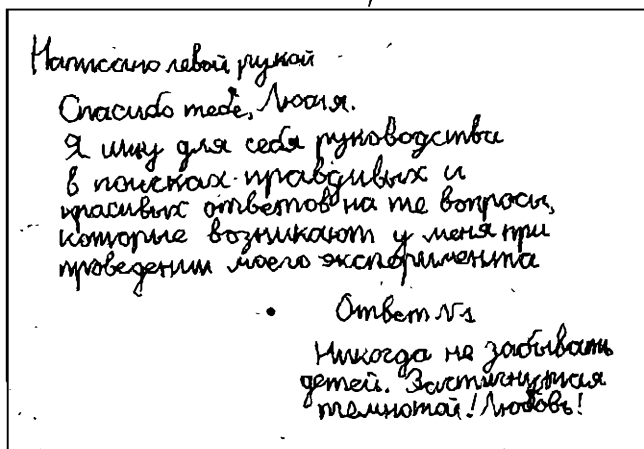 Написано левой рукой
Спасибо тебе, Люся.
Я ищу для себя руководства
в поисках правдивых и
красивых ответов на те вопросы,
которые возникают у меня при
проведении моего эксперимента
Ответ №1
Никогда не забывать
детей. Застигнутая
темнотой! Любовь!